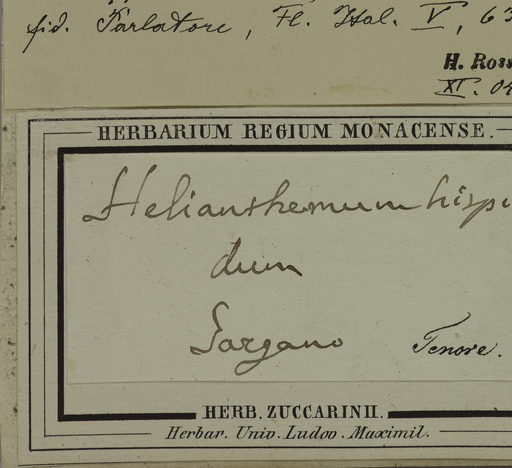 fid. Parlatore, Fl. Ital. V, 63
H. Ross
XI. 04
HERBARIUM REGIUM MONACENSE.
Helianthemum hispi
dum
Gargano
Tenore.
HERB. ZUCCARINII.
Herbar. Univ. Ludov. Maximil.